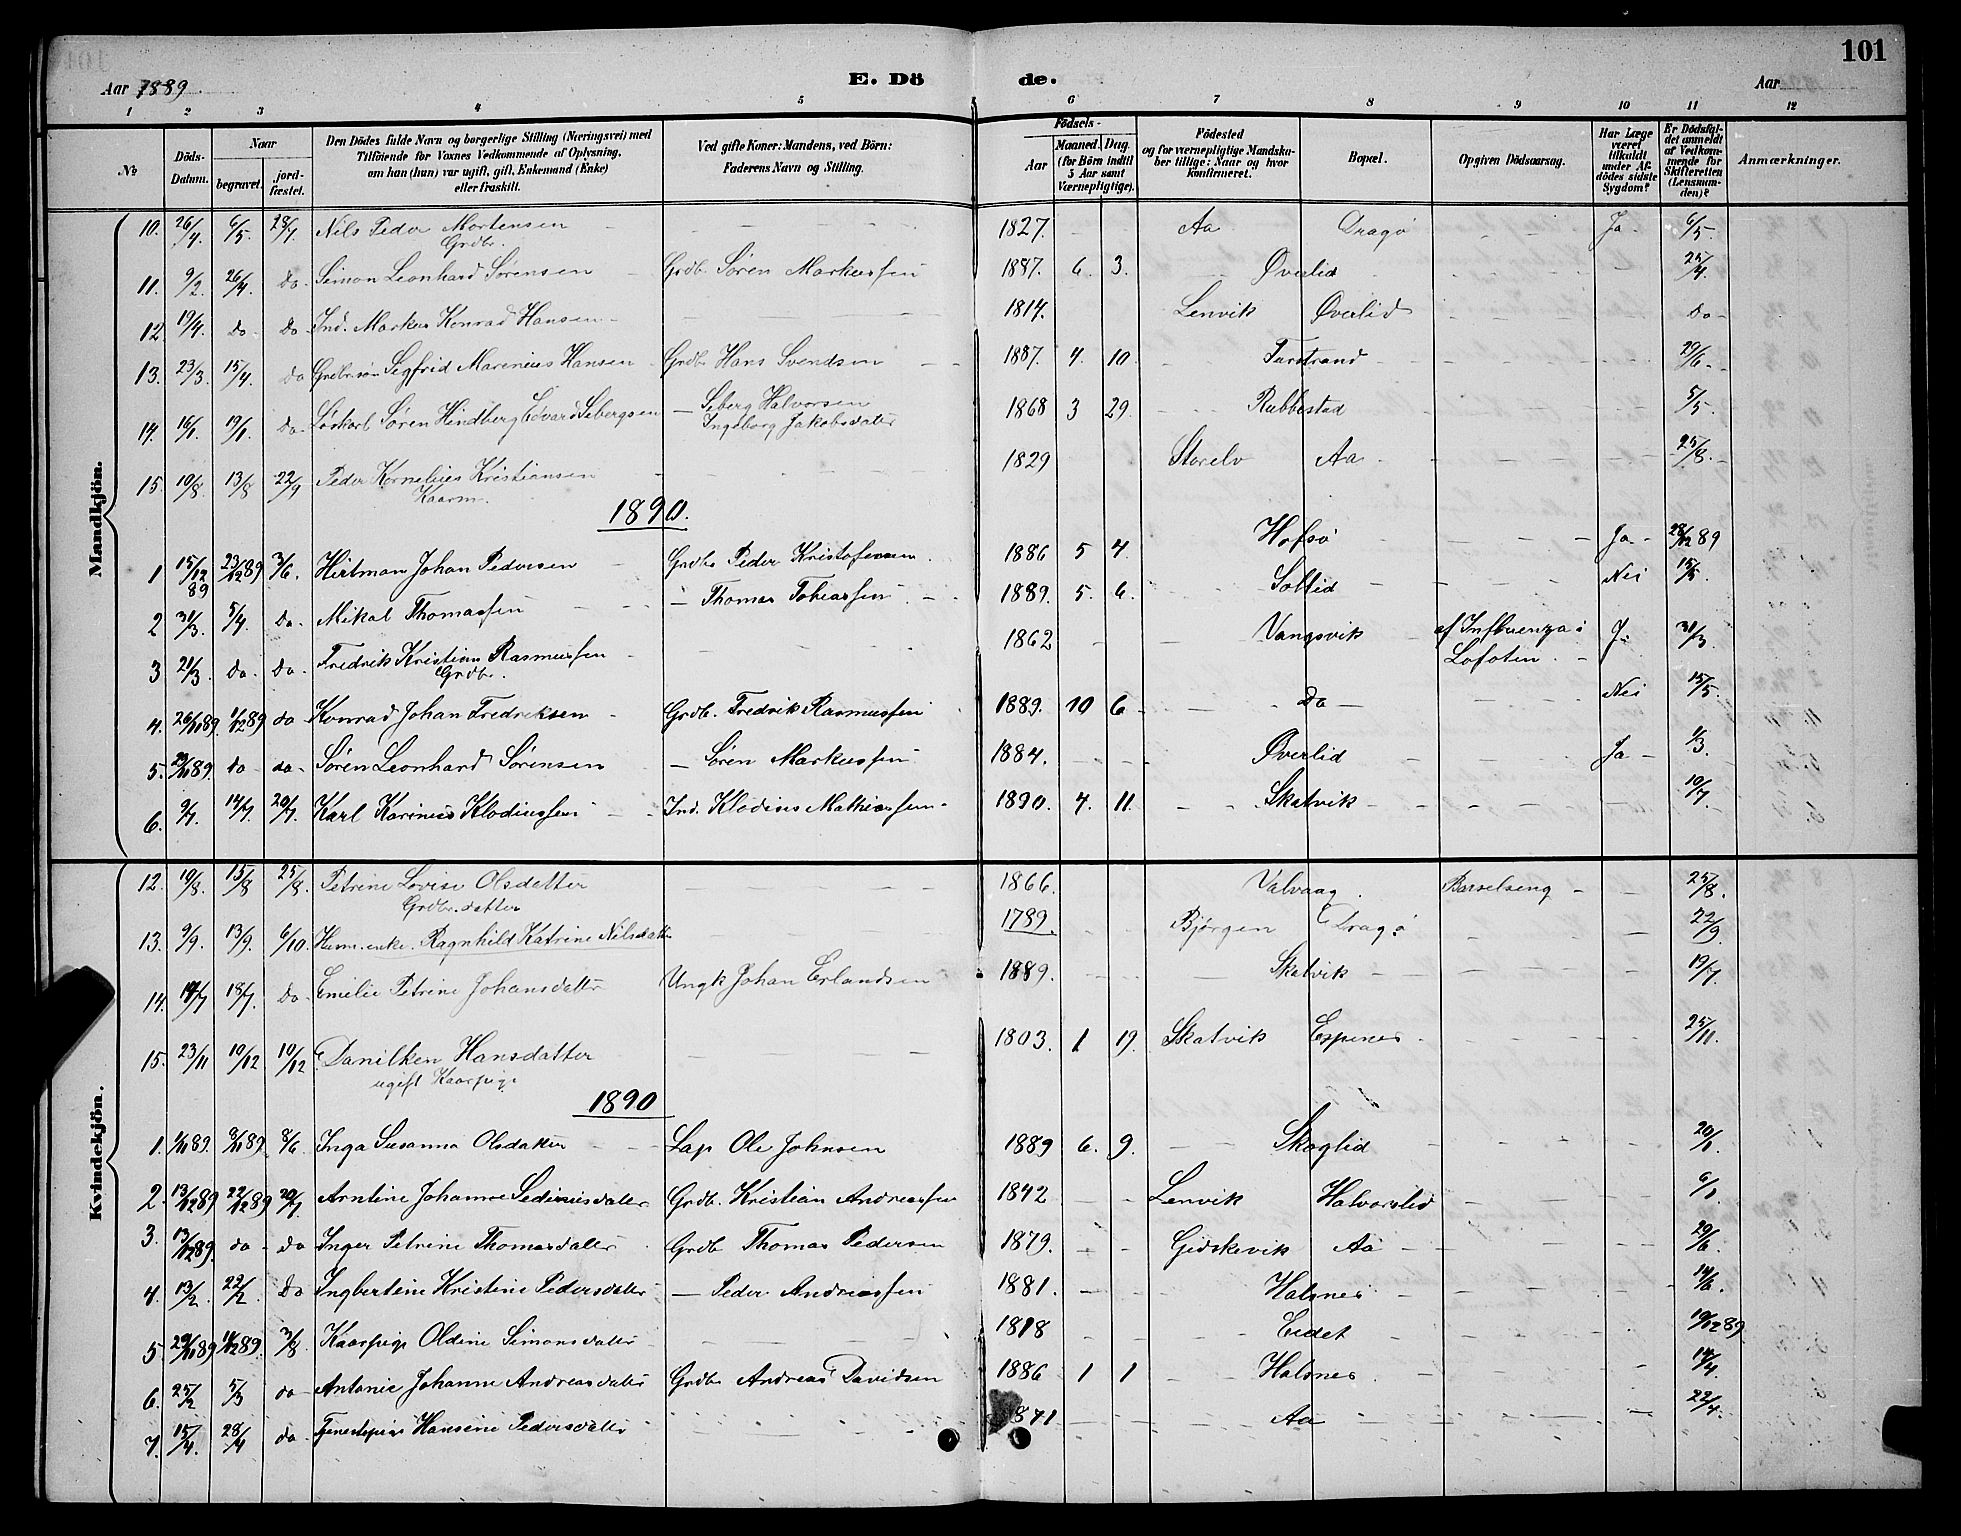 101
Aar 1889. E. Dö de. Aar
1 2 3 4 5 6 7 8 9 10 11 12
No Döds-Datum. Naar begravet. jord-fæstet. Den Dödes fulde Navn og borgerlige Stilling (Næringsvei) med Tilföiende for Voxnes Vedkommende af Oplysning, om han (hun) var ugift, gift, Enkemand (Enke) eller fraskilt. Ved gifte Koner: Mandens, ved Börn: Faderens Navn og Stilling. Födsels- Aar Maaned. Dag. (for Börn indtil 5 Aar samt Værnepligtige). Födested og for værnepligtige Mandskaber tillige: Naar og hvor konfirmeret. Bopæl. Opgiven Dödsaarsag. Har Læge været tilkaldt under Afdödes sidste Sygdom? Er Dödsfaldet anmeldt af Vedkommende for Skifteretten (Lensmanden)? Anmærkninger.
Mandkjön.
10. 26/4. 6/5. Nils Peder Mortensen Grdbr. 1827. Aa Dragö Ja 6/5.
11. 9/2. 26/4. Do Simon Leonhard Sørensen Grdb. Søren Markussen 1887. 6. 3. Øverlid 25/4.
12 19/4. Do Do Ind. Markus Konrad Hansen 1814. Lenvik Øverlid Do
13. 23/3. 15/4. Do Segfrid Marenius Hansen Grdb. Hans Svendsen 1887. 4 10. 29/6.
14. 16/1. 19/1. Do Søren Hindberg Edvard Sebergsen Seberg Halvorsen Ingeborg Jakobsdatter 1868 3 29. Rubbestad 5/5.
15. 10/8. 13/8 22/9 Peder Kornelius Kristiansen Kaarm. 1829 Storelv Aa 25/8.
1890.
1 15/12 89 23/12 89 3/6. Hirtman Johan Pedersen Grdb. Peder Kristofersen 1886 5 4. Hofsö Ja 28/12 89
2 31/3. 5/4. Do Mikal Thomassen Thomas Tobiassen 1889. 5. 6. Sollid Nei 15/5.
3 21/3. Do Do Fredrik Kristian Rasmussen Grdbr. 1862 Vangsvik af Influenza i Lofoten 31/3.
4. 89. 89 do Konrad Johan Fredriksen Grdb. Fredrik Rasmussen 1889. 10 6 Do Nei 15/5.
5. 89. do do Søren Leonhard Sørensen Søren Markussen 1884. Øverlid Ja
6. 9/7. 14/7 20/7. Karl Karinius Klodiussen Ind. Klodius Mathiassen 1890. 4. 11. Skatvik 10/7.
Kvindekjön.
12. 10/8. 15/8 25/8. Petrine Lovise Olsdatter Grdbr. datter 1866. Valvaag Barselseng 25/8.
13. 9/9. 13/9. 6/10. enke Ragnhild Katrine Nilsdatter 1789. Bjørgen Dragö 22/9
14. 18/7. Do Emilie Petrine Johansdatter Ungk Johan Erlandsen 1889. Skatvik 19/7.
15. 23/11 10/12 10/12 Danilken Hansdatter ugift Kaarpige 1803. 1 19. Skatvik Espenes 25/11.
1890
1. 89. 89 8/6 Inga Susanna Olsdatter Lap Ole Johnsen 1889 6. 9. Skoglid 20/1.
2. 13/12 89 22/12 89 20/7 Arntine Johanne Sedeniusdatter Grdb. Kristian Andreassen 1842 Lenvik Halvorslid 6/1
3. 13/12 89. do do Inger Petrine Thomasdatter Grdb Thomas Pedersen 1879. Gidskevik Aa 29/6.
4. 13/2. 22/2. Do Ingbertine Kristine Pedersdatter Peder Andreassen 1881. Halsnes 14/6.
5. 29/11 89 89. 3/8 Kaarpige Oldine Simonsdatter 1818 Eidet 89
6. 25/2 5/3 do Antonie Johanne Andreasdatter Grdbr Andreas Davidsen 1886 1 1 Halsnes 14/4.
7. 15/4. 28/4 do Tjenestepige Hansine Pedersdatter 1871 Aa 22/4.